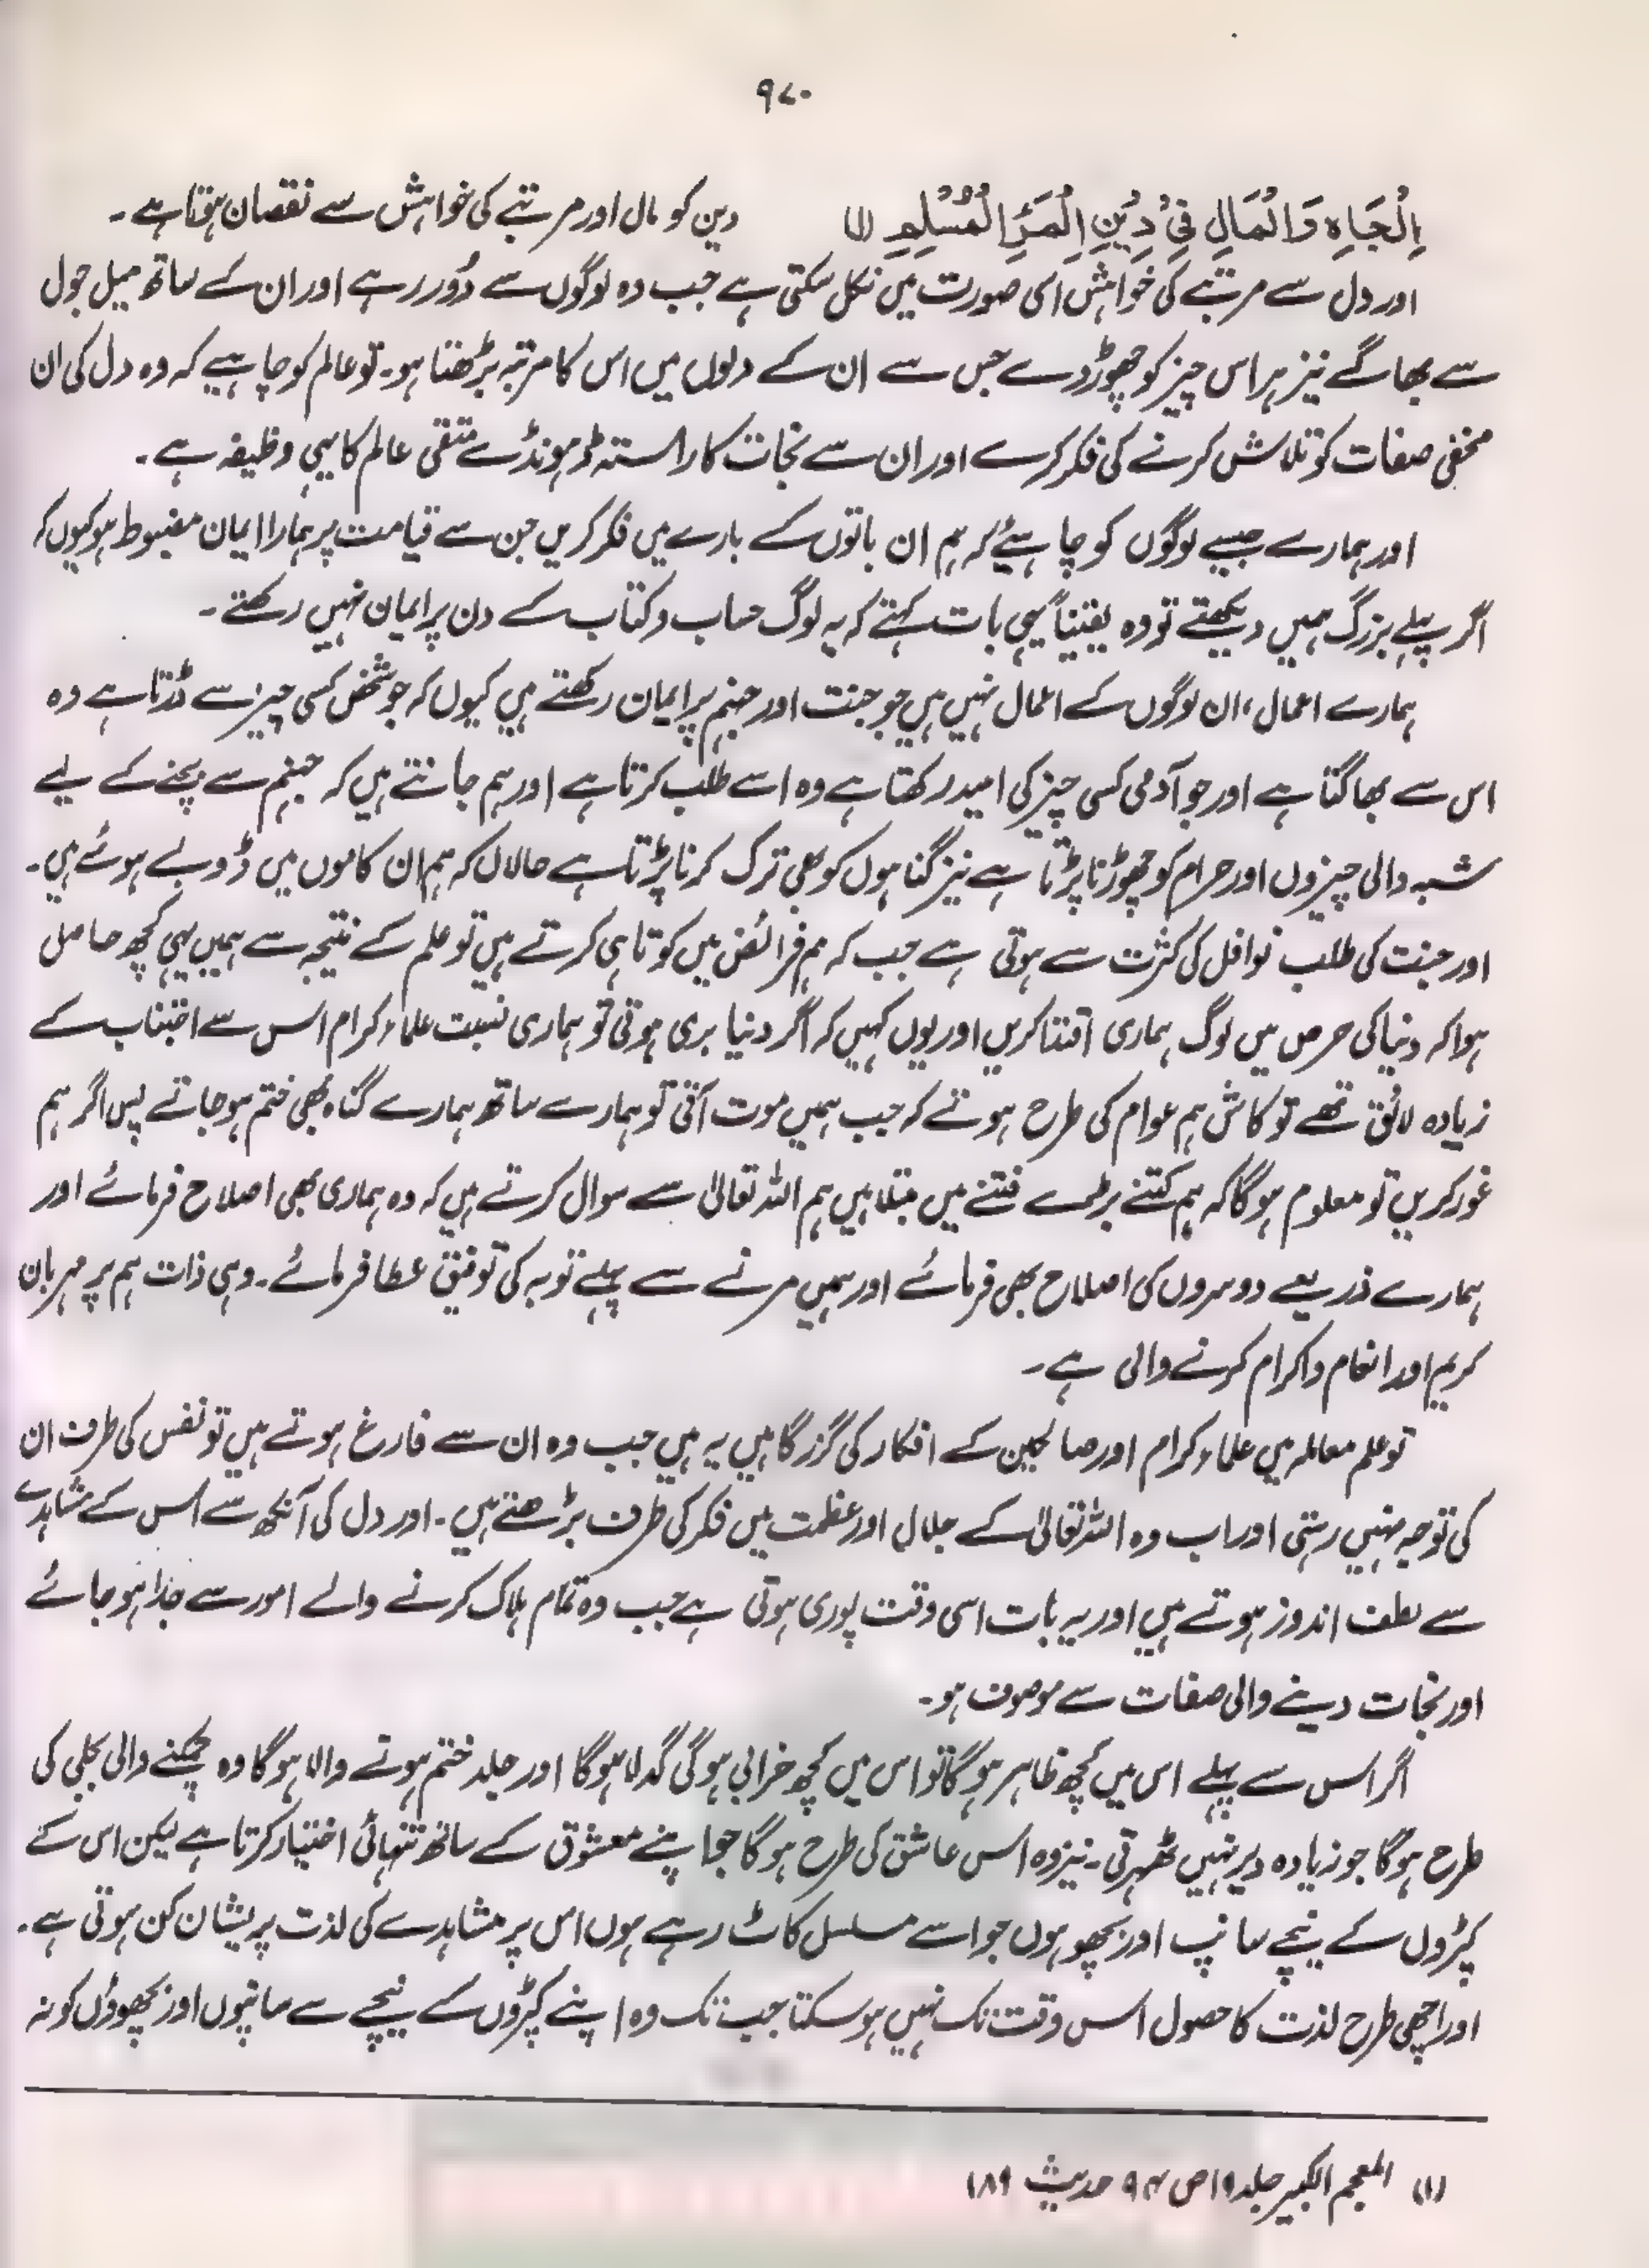 ۹۷۰
اِلْجَاہِ وَالْمَالِ فِیْ دِیْنِ الْمَرْءِ الْمُسْلِمِ (۱) دین کو مال اور مرتبے کی خواہش سے نقصان ہوتا ہے۔
اور دل سے مرتبے کی خواہش اسی صورت میں نکل سکتی ہے جب وہ لوگوں سے دُور رہے اور ان کے ساتھ میل جول
سے بھاگے نیز ہر اس چیز کو چھوڑ دے جس سے ان کے دلوں میں اس کا مرتبہ بڑھتا ہو۔ تو عالم کو چاہیے کہ وہ دل کی ان
مخفی صفات کو تلاش کرنے کی فکر کرے اور ان سے نجات کا راستہ ڈھونڈے متقی عالم کا یہی وظیفہ ہے۔
اور ہمارے جیسے لوگوں کو چاہیئے کہ ہم ان باتوں کے بارے میں فکر کریں جن سے قیامت پر ہمارا ایمان مضبوط ہو کیوں کہ
اگر پہلے بزرگ ہمیں دیکھتے تو وہ یقیناً یہی بات کہتے کہ یہ لوگ حساب و کتاب کے دن پر ایمان نہیں رکھتے۔
ہمارے اعمال، ان لوگوں کے اعمال نہیں ہیں جو جنت اور جہنم پر ایمان رکھتے ہیں کیوں کہ جو شخص کسی چیز سے ڈرتا ہے وہ
اس سے بھاگتا ہے اور جو آدمی کسی چیز کی امید رکھتا ہے وہ اسے طلب کرتا ہے اور ہم جانتے ہیں کہ جہنم سے بچنے کے لیے
شبہ والی چیزوں اور حرام کو چھوڑنا پڑتا ہے نیز گناہوں کو بھی ترک کرنا پڑتا ہے حالاں کہ ہم ان کاموں میں ڈوبے ہوئے ہیں۔
اور جنت کی طلب نوافل کی کثرت سے ہوتی ہے جب کہ ہم فرائض میں کوتاہی کرتے ہیں تو علم کے نتیجہ سے ہمیں یہی کچھ حاصل
ہوا کہ دنیا کی حرص میں لوگ ہماری اقتدا کریں اور یوں کہیں کہ اگر دنیا بری ہوتی تو ہماری نسبت علماء کرام اس سے اجتناب کے
زیادہ لائق تھے تو کاش ہم عوام کی طرح ہوتے کہ جب ہمیں موت آتی تو ہمارے ساتھ ہمارے گناہ بھی ختم ہو جاتے پس اگر ہم
غور کریں تو معلوم ہوگا کہ ہم کتنے بڑے فتنے میں مبتلا ہیں ہم اللہ تعالیٰ سے سوال کرتے ہیں کہ وہ ہماری بھی اصلاح فرمائے اور
ہمارے ذریعے دوسروں کی اصلاح بھی فرمائے اور ہمیں مرنے سے پہلے توبہ کی توفیق عطا فرمائے۔ وہی ذات ہم پر مہربان
کریم اور انعام و اکرام کرنے والی ہے۔
تو علم معاملہ میں علماء کرام اور صالحین کے افکار کی گزرگاہیں یہ ہیں جب وہ ان سے فارغ ہوتے ہیں تو نفس کی طرف ان
کی توجہ نہیں رہتی اور اب وہ اللہ تعالیٰ کے جلال اور عظمت میں فکر کی طرف بڑھتے ہیں۔ اور دل کی آنکھ سے اس کے مشاہدے
سے لطف اندوز ہوتے ہیں اور یہ بات اسی وقت پوری ہوتی ہے جب وہ تمام ہلاک کرنے والے امور سے جدا ہو جائے
اور نجات دینے والی صفات سے موصوف ہو۔
اگر اس سے پہلے اس میں کچھ ظاہر ہوگا تو اس میں کچھ خرابی ہوگی گدلا ہوگا اور جلد ختم ہونے والا ہوگا وہ چمکنے والی بجلی کی
طرح ہوگا جو زیادہ دیر نہیں ٹھہرتی۔ نیز وہ اس عاشق کی طرح ہوگا جو اپنے معشوق کے ساتھ تنہائی اختیار کرتا ہے لیکن اس کے
کپڑوں کے نیچے سانپ اور بچھو ہوں جو اسے مسلسل کاٹ رہے ہوں اس پر مشاہدے کی لذت پریشان کن ہوتی ہے۔
اور اچھی طرح لذت کا حصول اس وقت تک نہیں ہو سکتا جب تک وہ اپنے کپڑوں کے نیچے سے سانپوں اور بچھوؤں کو نہ
(۱) المعجم الکبیر جلد ۱۹ ص ۹۴ حدیث ۱۸۹